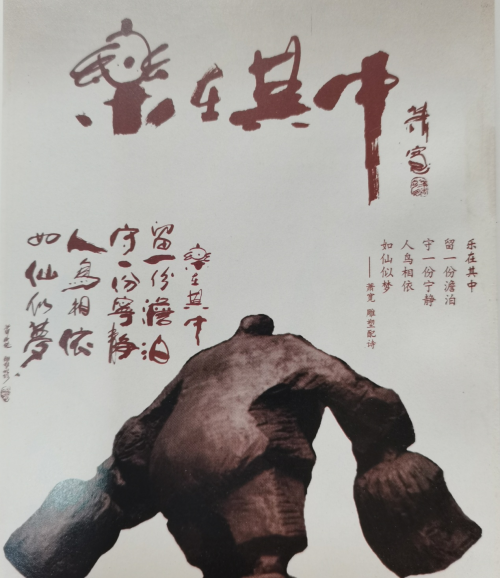 樂在其中
萧宽
乐在其中
留一份澹泊
守一份宁静
人鸟相依
如仙似梦
——萧宽 雕塑配诗
樂在其中
留一份澹泊
守一份寧静
人鳥相依
如仙似夢